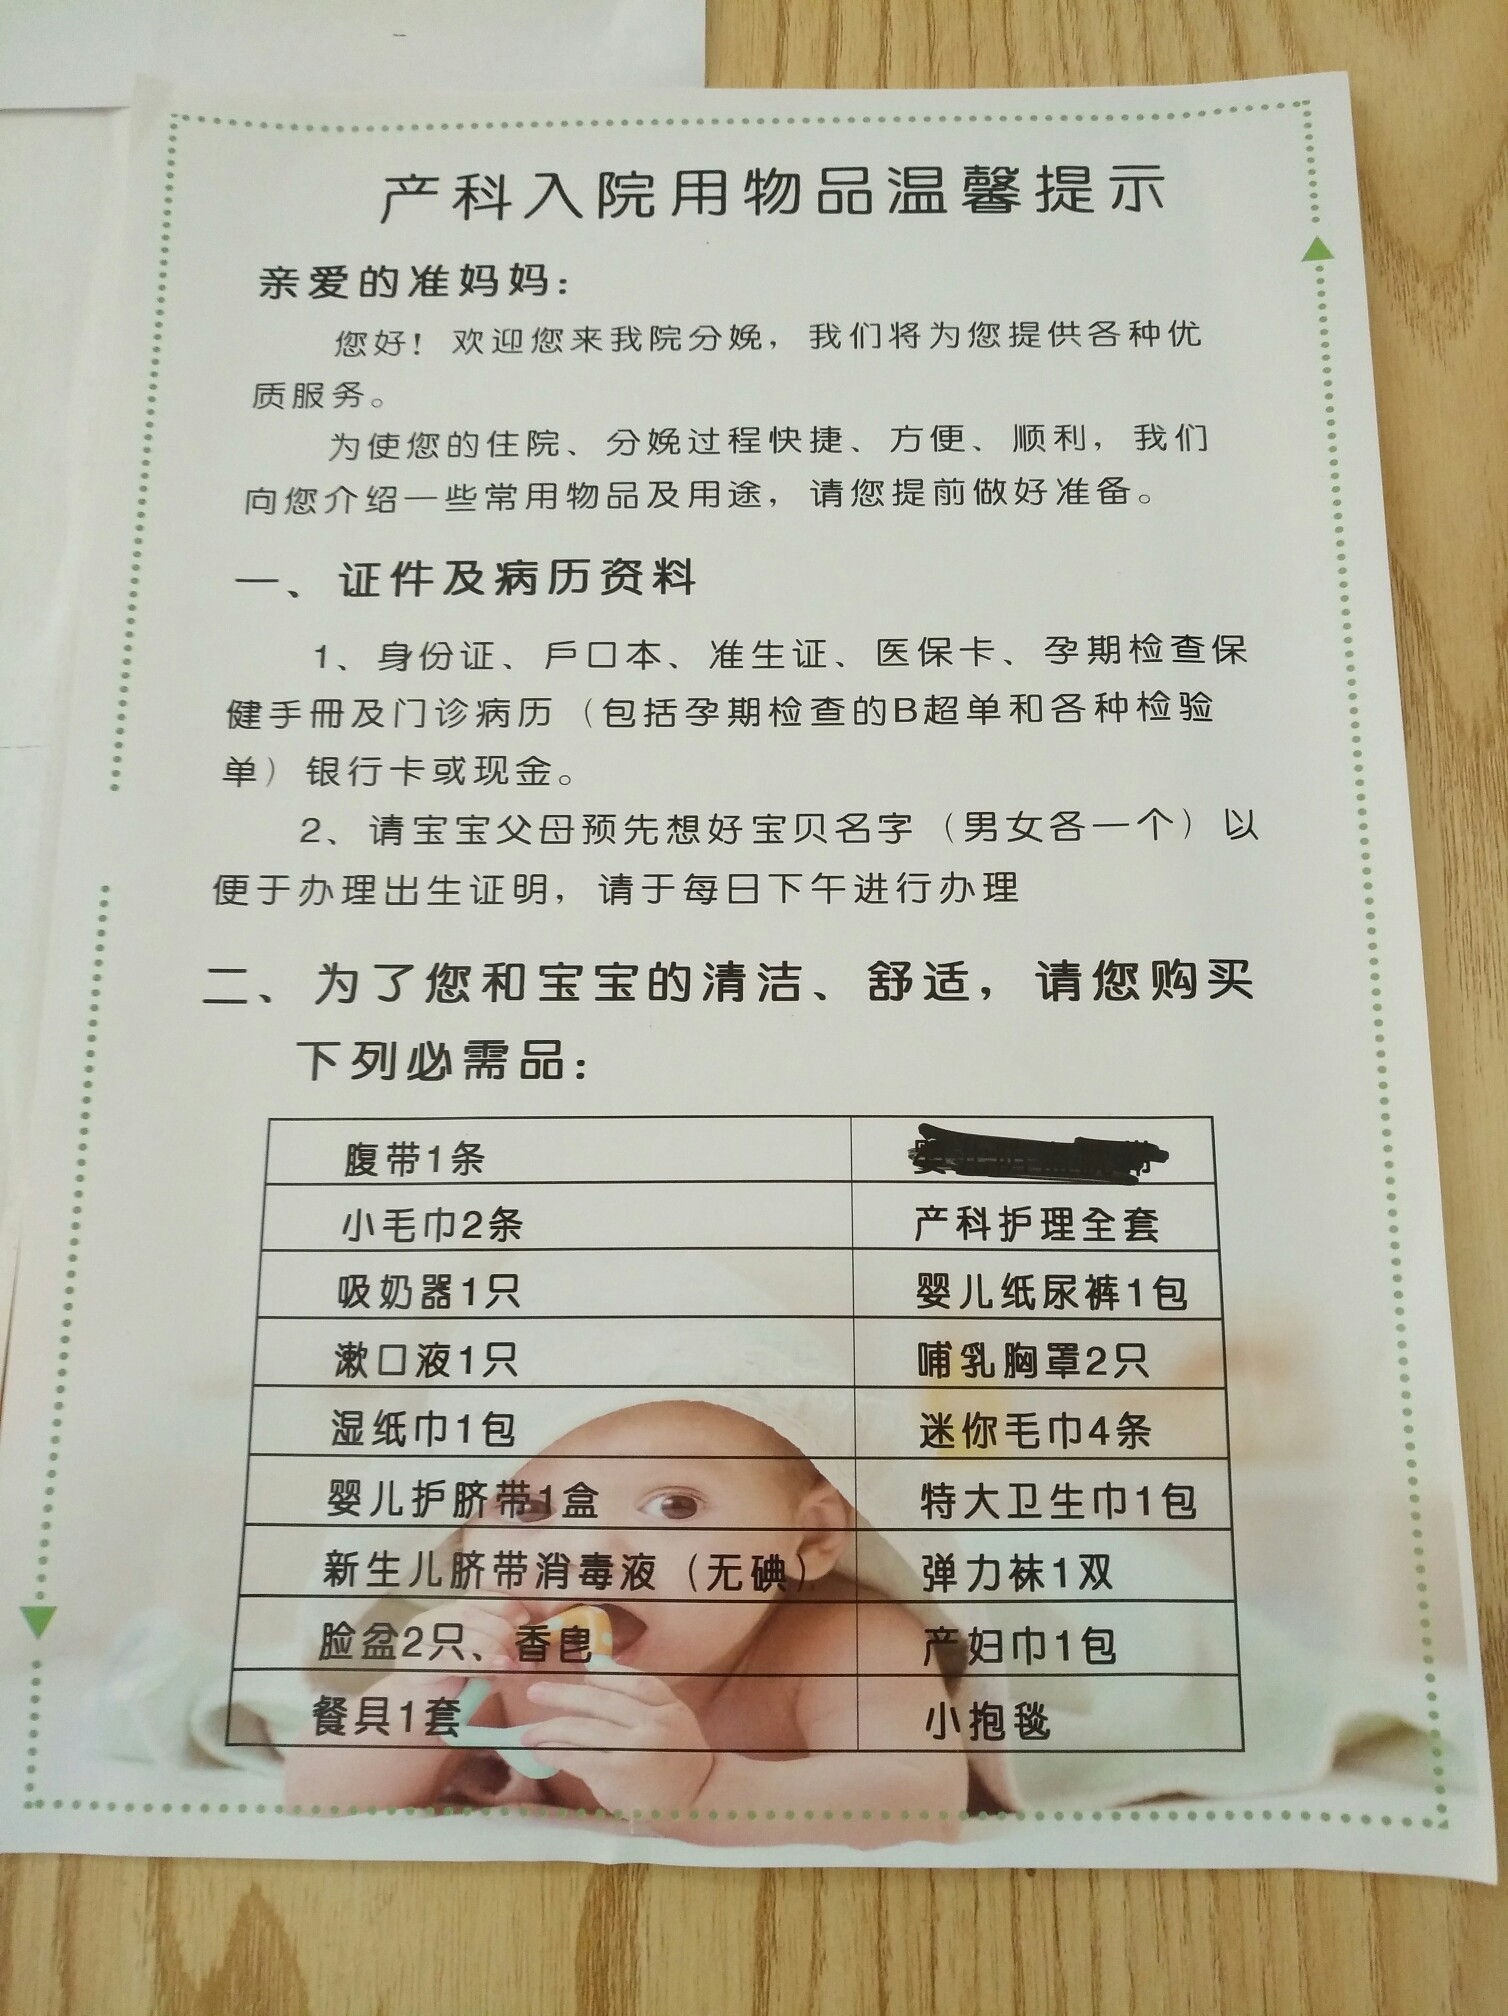 产科入院用物品温馨提示
亲爱的准妈妈:
您好! 欢迎您来我院分娩，我们将为您提供各种优
质服务。
为使您的住院、分娩过程快捷、方便、顺利，我们
向您介绍一些常用物品及用途，请您提前做好准备。
一、证件及病历资料
1、身份证、戶口本、准生证、医保卡、孕期检查保
健手册及门诊病历（包括孕期检查的B超单和各种检验
单）银行卡或现金。
2、请宝宝父母预先想好宝贝名字（男女各一个）以
便于办理出生证明，请于每日下午进行办理
二、为了您和宝宝的清洁、舒适，请您购买
下列必需品:
腹带1条
小毛巾2条 产科护理全套
吸奶器1只 婴儿纸尿裤1包
漱口液1只 哺乳胸罩2只
湿纸巾1包 迷你毛巾4条
婴儿护脐带1盒 特大卫生巾1包
新生儿脐带消毒液（无碘） 弹力袜1双
脸盆2只、香皂 产妇巾1包
餐具1套 小抱毯